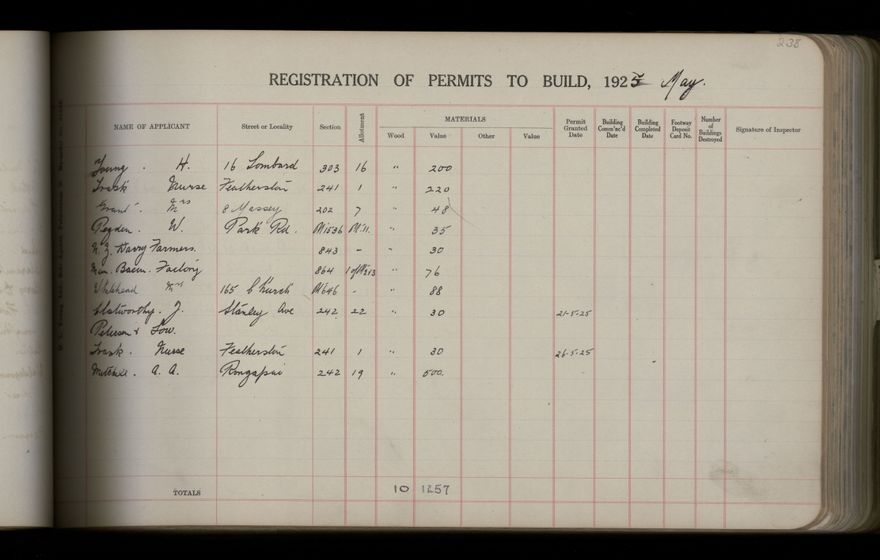 238
REGISTRATION OF PERMITS TO BUILD, 1925 May.
NAME OF APPLICANT Street or Locality Section Allotment MATERIALS Wood Value Other Value Permit Granted Date Building Comm'nc'd Date Building Completed Date Footway Deposit Card No. Number of Buildings Destroyed Signature of Inspector
Young . H. 16 Lombard 303 16 " 200
Trask Nurse Featherston 241 1 " 220
Grant . Mrs 8 Massey 202 7 " 48
Pegden . W. Park Rd. 1536 " 35
N. Z. Dairy Farmers. 843 - " 30
Bacon . Factory 864 " 76
Whitehead Mrs 165 Church 646 - " 88
Clatworthy . J. Stanley Ave 242 22 " 30 21-5-25
Peterson & Low.
Trask . Nurse Featherston 241 1 " 30 26-5-25
Mitchell . A. A. 242 19 " 500.
TOTALS 10 1257